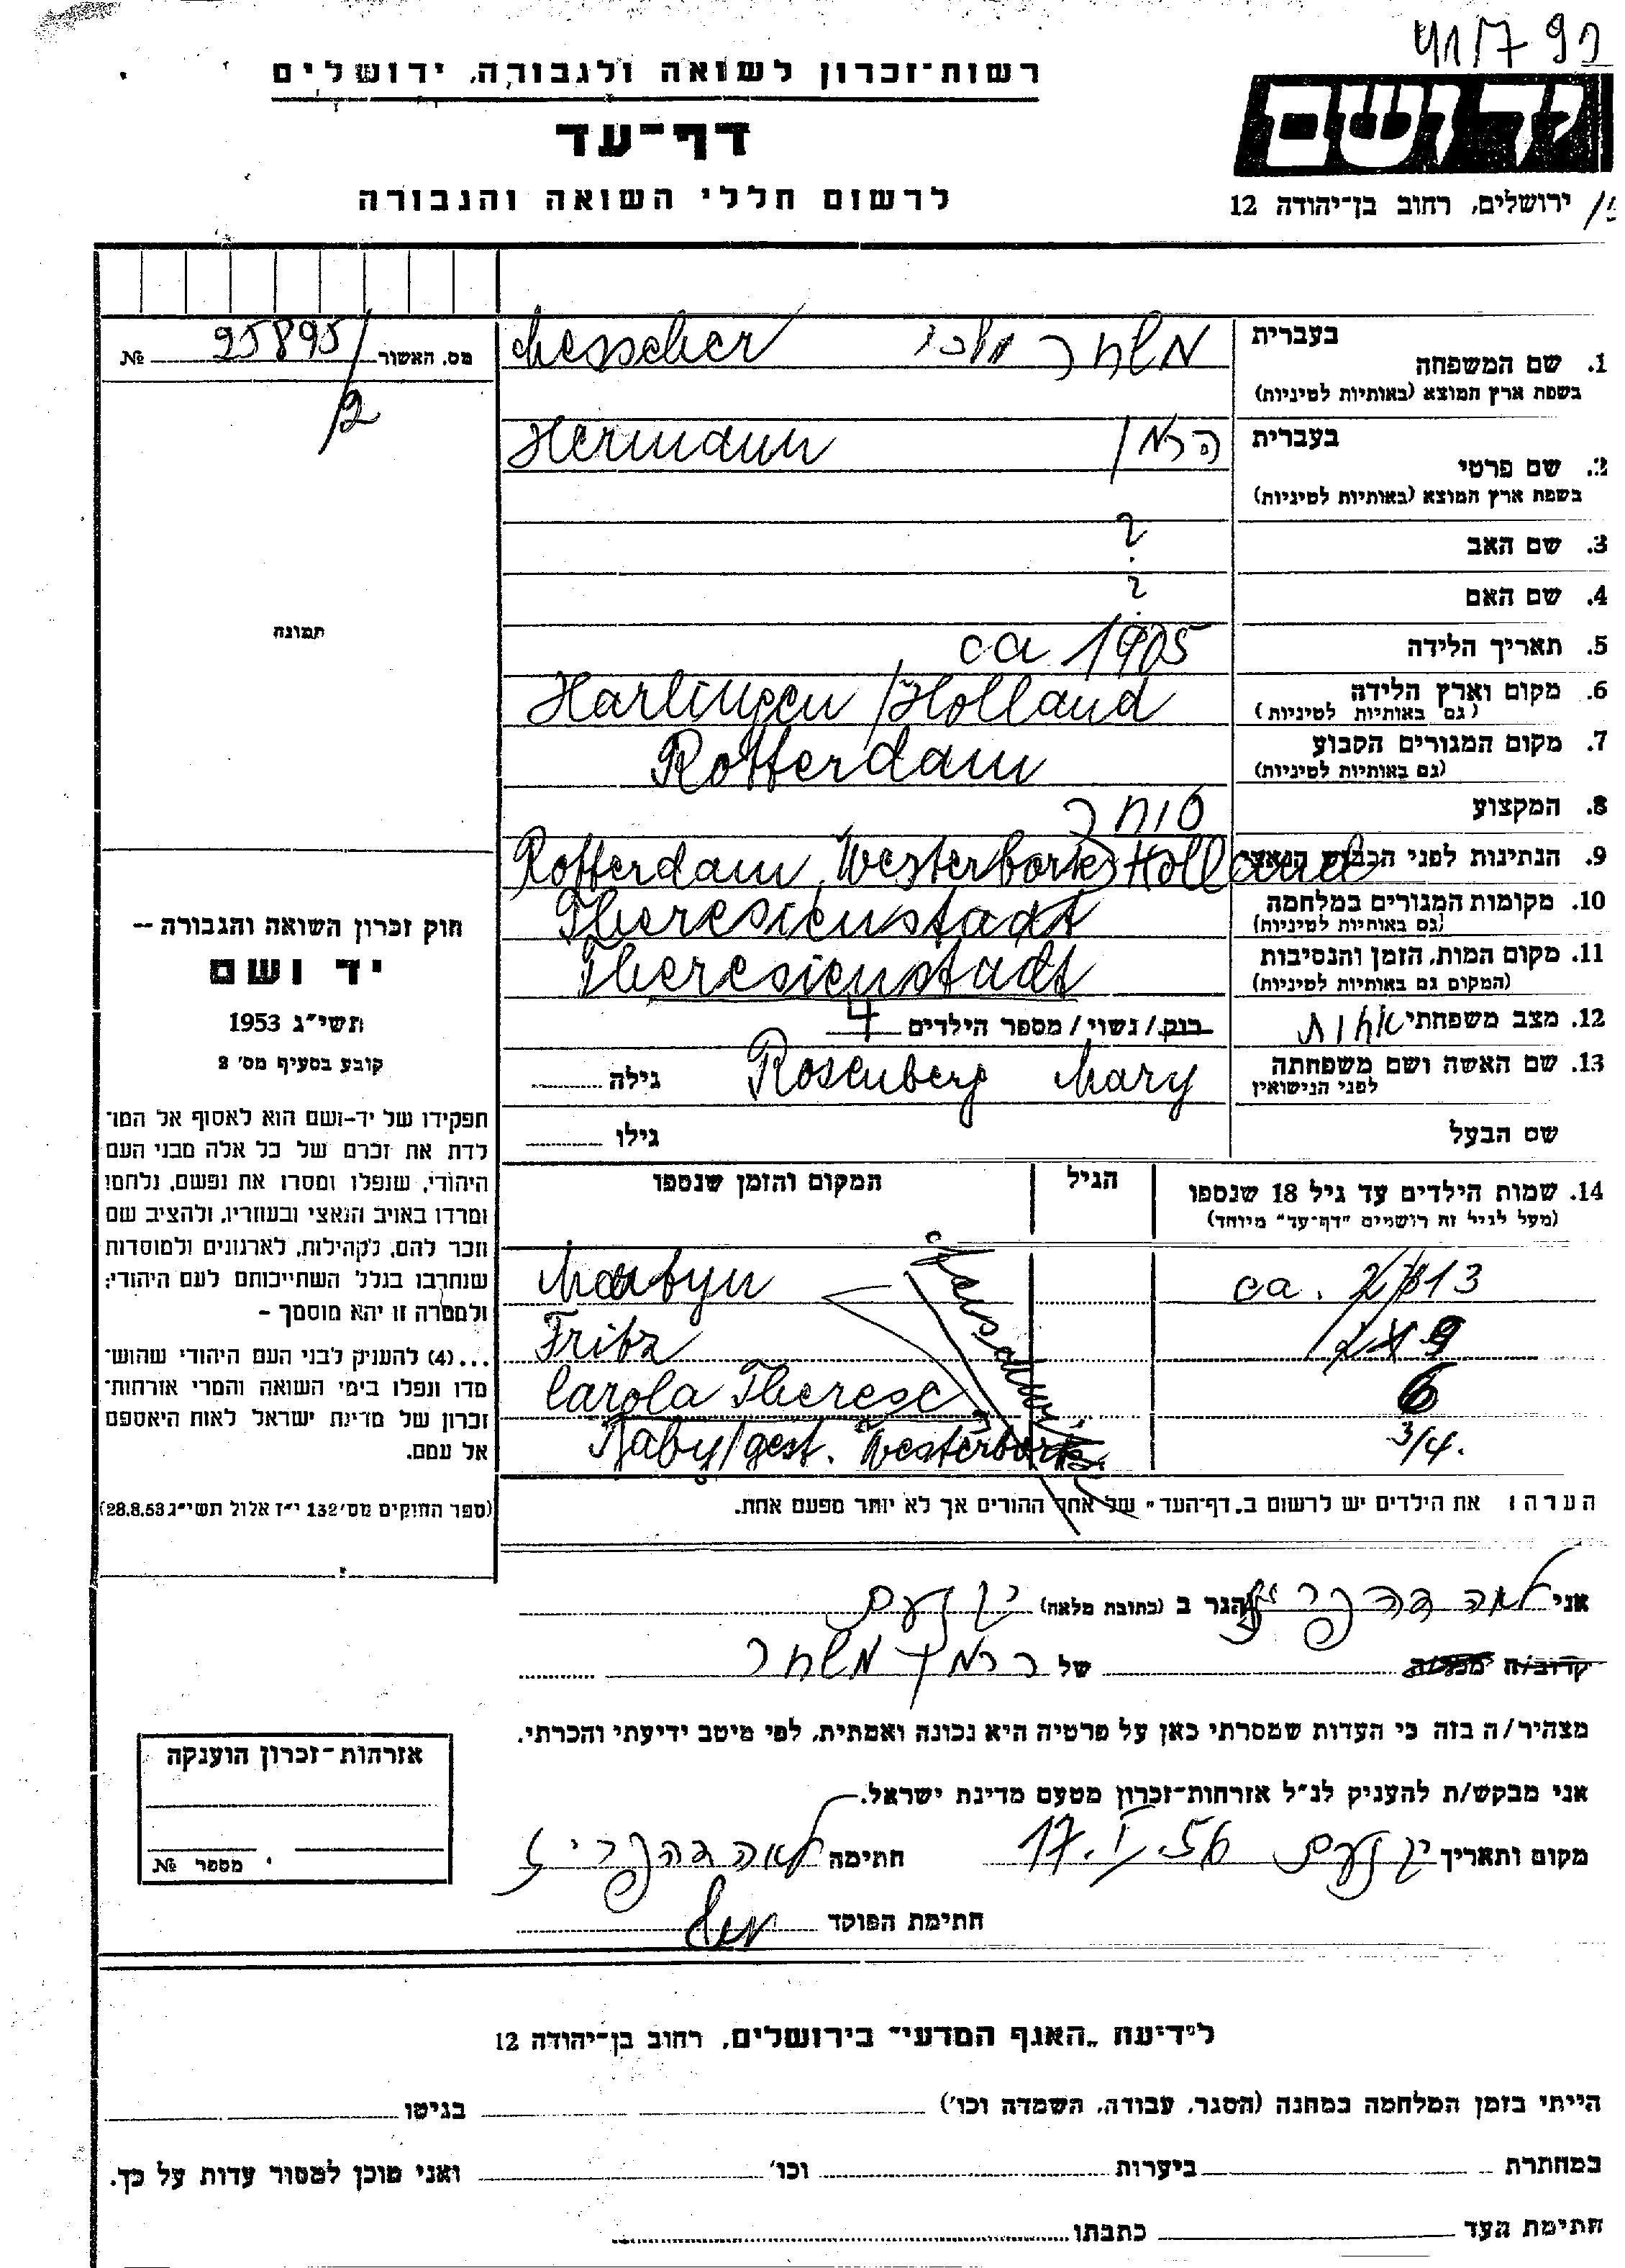 41/792
רשות־זכרון לשואה ולגבורה, ירושלים
דף־עד
לרשום חללי השואה והגבורה
יד ושם
ירושלים, רחוב בן־יהודה 12
מס. האשור 25895/2 №
בעברית
1. שם המשפחה משחר Messcher
בשפת ארץ המוצא (באותיות לטיניות)
בעברית
2. שם פרטי הרמן Hermann
בשפת ארץ המוצא (באותיות לטיניות)
3. שם האב ?
4. שם האם ?
תמונה
5. תאריך הלידה ca 1905
6. מקום וארץ הלידה Harlingen / Holland
(גם באותיות לטיניות)
7. מקום המגורים הקבוע Rotterdam
(גם באותיות לטיניות)
8. המקצוע סוחר
9. הנתינות לפני הכבוש הנאצי Rotterdam, Westerbork, Holland
10. מקומות המגורים במלחמה Theresienstadt
(גם באותיות לטיניות)
11. מקום המות, הזמן והנסיבות Theresienstadt
(המקום גם באותיות לטיניות)
12. מצב משפחתי רווק / נשוי / מספר הילדים 4
13. שם האשה ושם משפחתה Rosenberg Mary גילה
לפני הנישואין
שם הבעל גילו
14. שמות הילדים עד גיל 18 שנספו הגיל המקום והזמן שנספו
(מעל לגיל זה רושמים "דף־עד" מיוחד)
ca. 13
Fritz 9
Carola Therese 6
Baby/gest. Westerbork. 3/4.
הערה: את הילדים יש לרשום ב„דף־העד" של אחד ההורים אך לא יותר מפעם אחת.
חוק זכרון השואה והגבורה —
יד ושם
תשי"ג 1953
קובע בסעיף מס' 2
תפקידו של יד-ושם הוא לאסוף אל המו־
לדת את זכרם של כל אלה מבני העם
היהודי, שנפלו ומסרו את נפשם, נלחמו
ומרדו באויב הנאצי ובעוזריו, ולהציב שם
וזכר להם, לקהילות, לארגונים ולמוסדות
שנחרבו בגלל השתייכותם לעם היהודי;
ולמטרה זו יהא מוסמך –
...(4) להעניק לבני העם היהודי שהוש־
מדו ונפלו בימי השואה והמרי אזרחות־
זכרון של מדינת ישראל לאות היאספם
אל עמם.
(ספר החוקים מס' 132 י"ז אלול תשי"ג 28.8.53)
אני לאה הגר ב (כתובת מלאה) יקנעם
קרוב/ה של הרמן משחר
מצהיר/ה בזה כי העדות שמסרתי כאן על פרטיה היא נכונה ואמתית, לפי מיטב ידיעתי והכרתי.
אני מבקש/ת להעניק לנ"ל אזרחות־זכרון מטעם מדינת ישראל.
מקום ותאריך יקנעם 17.I.56 חתימה לאה
חתימת הפוקד
אזרחות־זכרון הוענקה
מספר №
לידיעת „האגף המדעי" בירושלים, רחוב בן־יהודה 12
הייתי בזמן המלחמה במחנה (הסגר, עבודה, השמדה וכו') בגיטו
במחתרת ביערות וכו' ואני מוכן למסור עדות על כך.
חתימת העד כתבתו